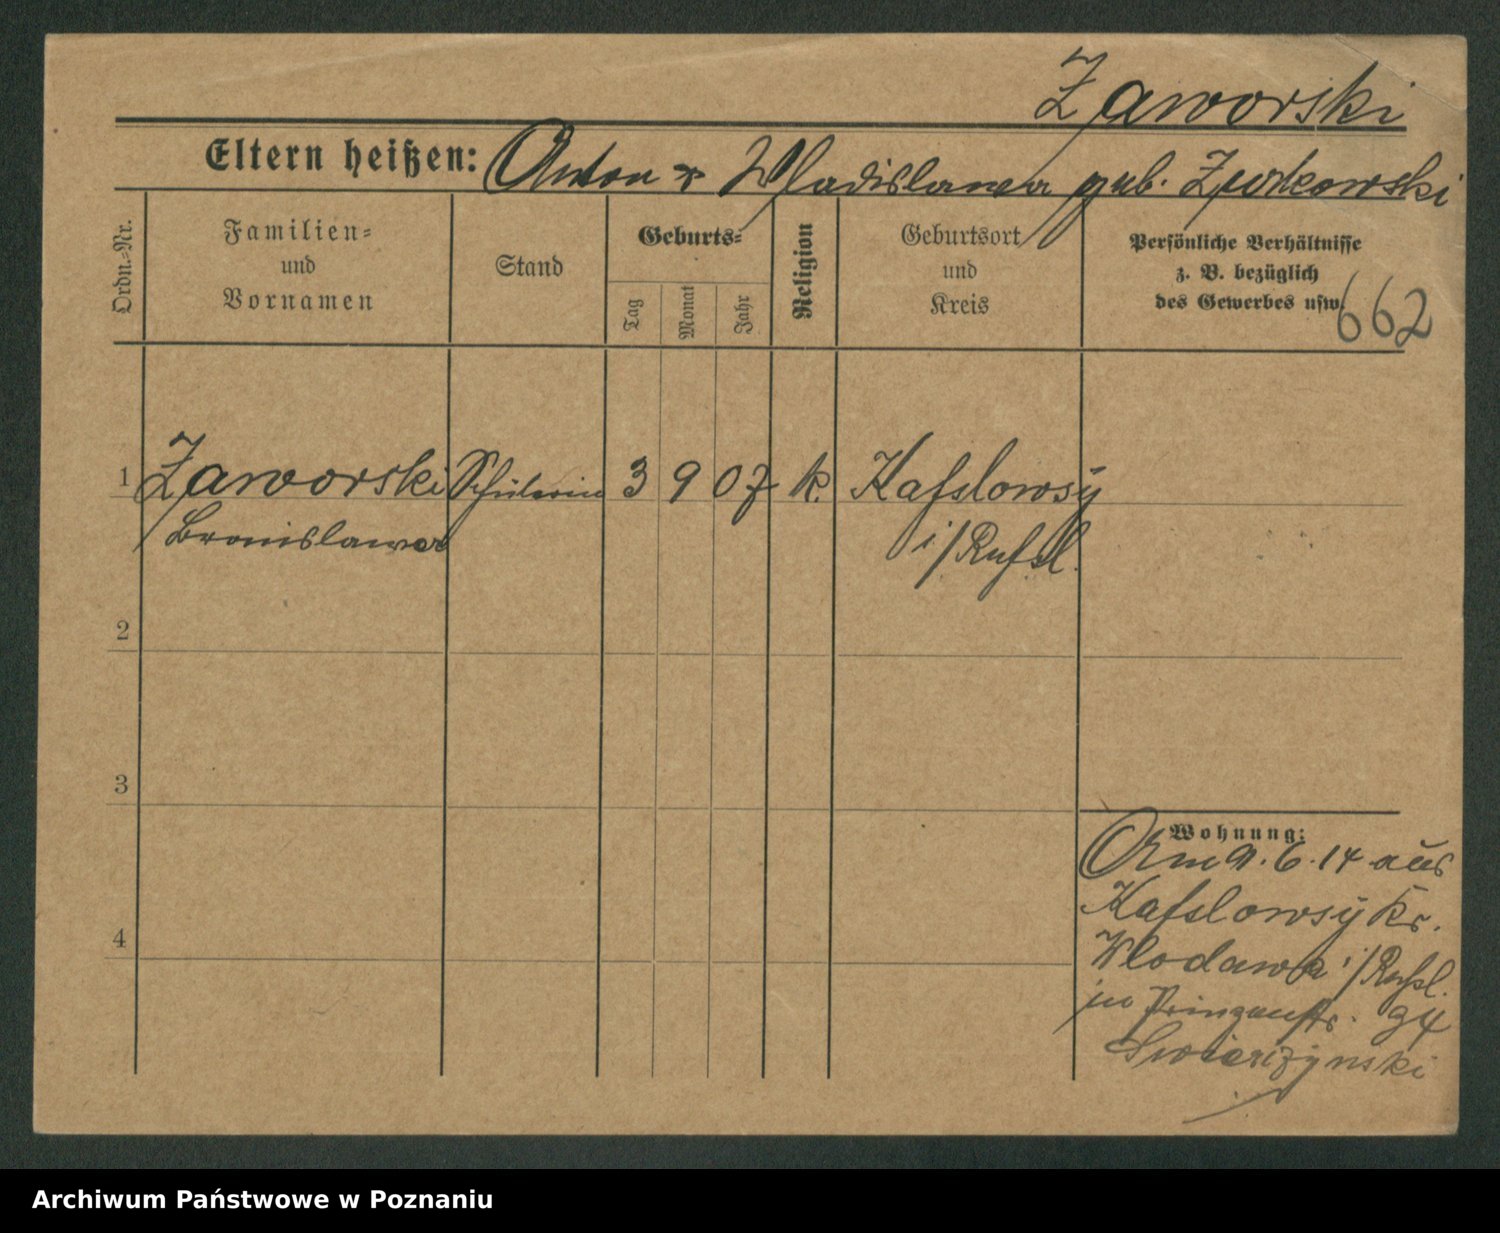 Zaworski
Eltern heißen: Anton & Wladislawa geb. Zurkowski
Ordn.-Nr.
Familien-
und
Vornamen
Stand
Geburts-
Tag
Monat
Jahr
Religion
Geburtsort
und
Kreis
Persönliche Verhältnisse
z. B. bezüglich
des Gewerbes usw.
662
1 Zaworski Schülerin 3 9 07 k. Kafslowsy
Bronislawa i/Rußl.
2
3
4
Wohnung:
Am 9. 6. 14 aus
Kafslowsy Kr.
Wlodawa i/Rußl.
in Prinzenstr. 94
Swierzynski
Archiwum Państwowe w Poznaniu